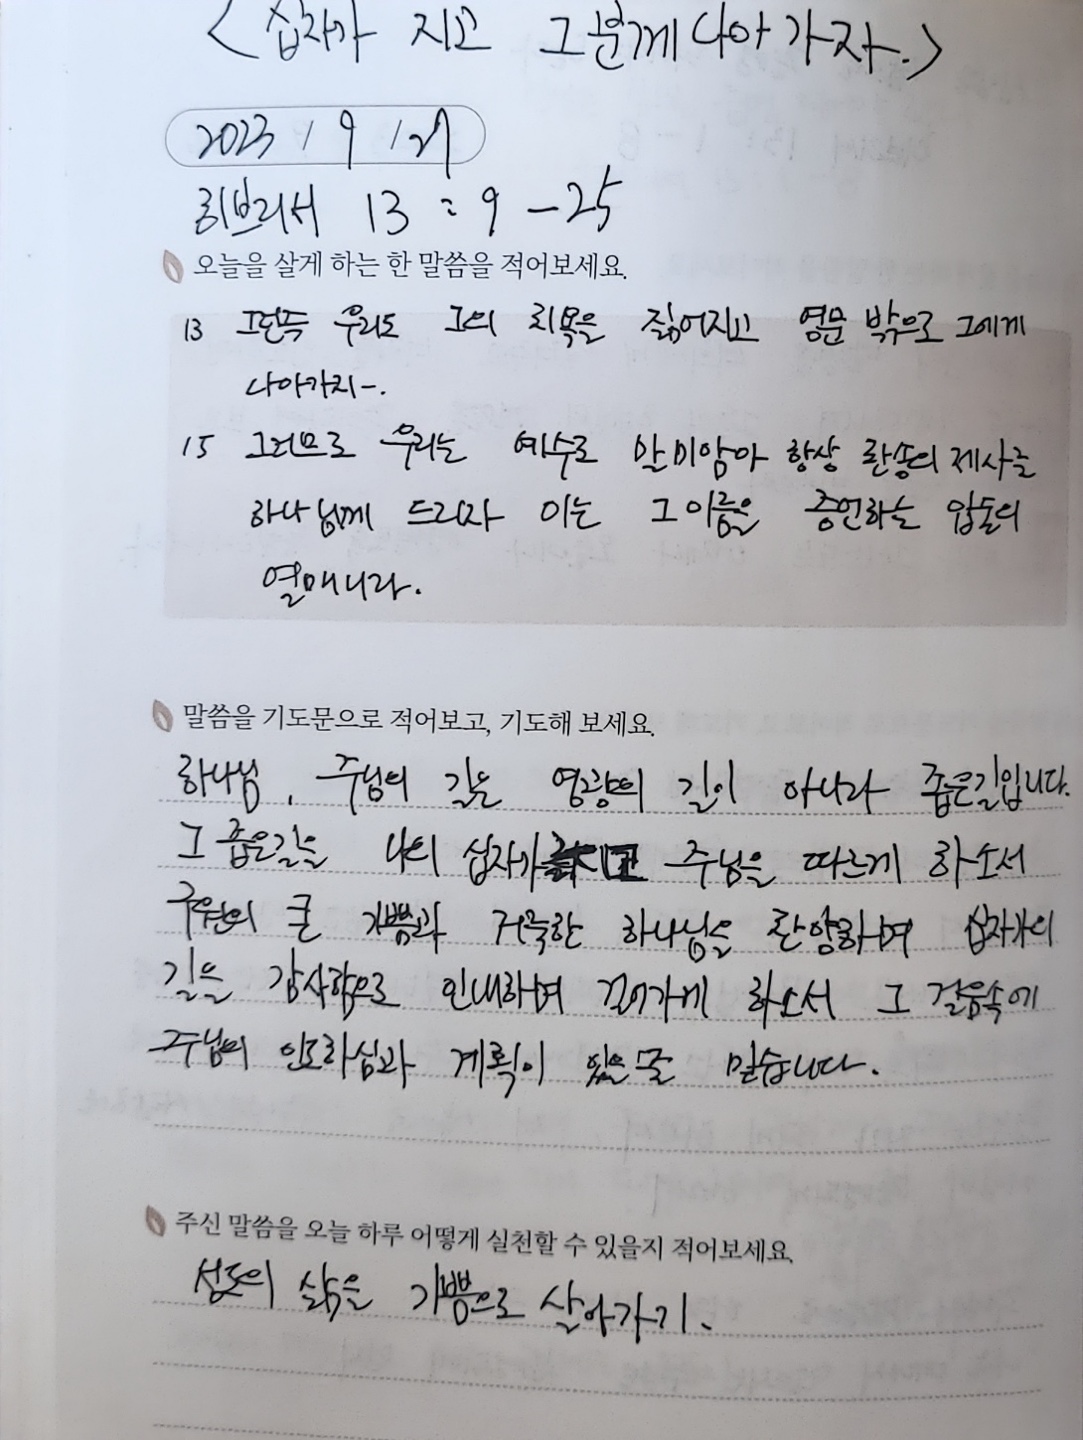 <십자가 지고 그분께 나아가자.>
2023 / 9 / 27
히브리서 13 : 9 - 25
오늘을 살게 하는 한 말씀을 적어보세요.
13 그런즉 우리도 그의 치욕을 짊어지고 영문 밖으로 그에게
나아가자.
15 그러므로 우리는 예수로 말미암아 항상 찬송의 제사를
하나님께 드리자 이는 그 이름을 증언하는 입술의
열매니라.
말씀을 기도문으로 적어보고, 기도해 보세요.
하나님, 주님의 길은 영광의 길이 아니라 좁은길입니다.
그 좁은길을 나의 십자가 지고 주님을 따르게 하소서
구원의 큰 기쁨과 거룩한 하나님을 찬양하며 십자가의
길을 감사함으로 인내하며 걸어가게 하소서 그 걸음속에
주님의 인도하심과 계획이 있을줄 믿습니다.
주신 말씀을 오늘 하루 어떻게 실천할 수 있을지 적어보세요.
성도의 삶을 기쁨으로 살아가기.